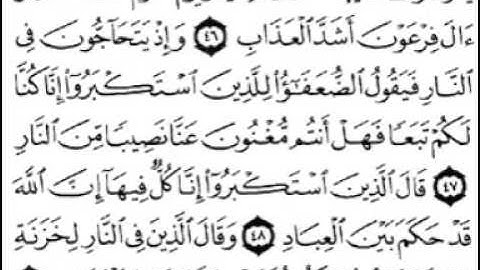 ءَالَ فِرْعَوْنَ أَشَدَّ ٱلْعَذَابِ ٤٦ وَإِذْ يَتَحَآجُّونَ فِى
ٱلنَّارِ فَيَقُولُ ٱلضُّعَفَٰٓؤُا۟ لِلَّذِينَ ٱسْتَكْبَرُوٓا۟ إِنَّا كُنَّا
لَكُمْ تَبَعًا فَهَلْ أَنتُم مُّغْنُونَ عَنَّا نَصِيبًا مِّنَ ٱلنَّارِ
٤٧ قَالَ ٱلَّذِينَ ٱسْتَكْبَرُوٓا۟ إِنَّا كُلٌّ فِيهَآ إِنَّ ٱللَّهَ
قَدْ حَكَمَ بَيْنَ ٱلْعِبَادِ ٤٨ وَقَالَ ٱلَّذِينَ فِى ٱلنَّارِ لِخَزَنَةِ